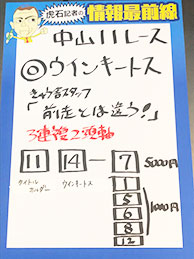 虎石記者の
情報最前線
中山11レース
◎ウインキートス
きゅう舎スタッフ
「前走とは違う!」
3連複2頭軸
11 14 ー 7 5000円
タイトルホルダー ウインキートス
1
5
6
8
12
1000円